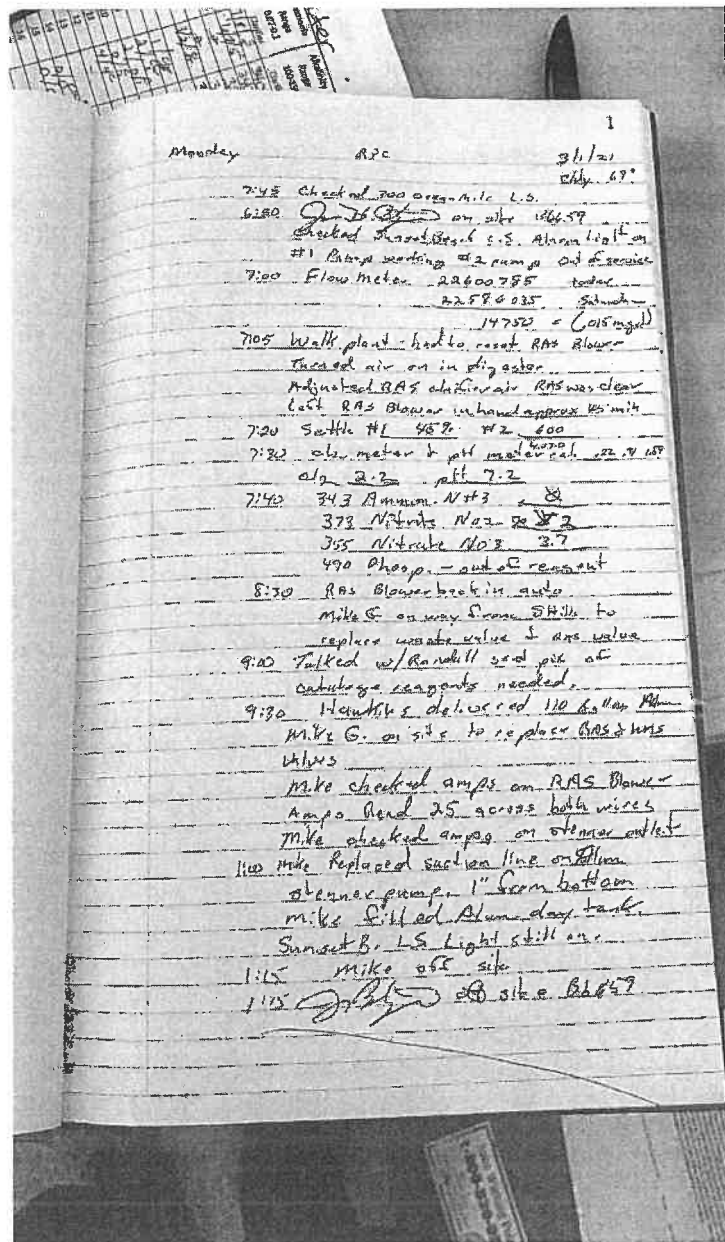 1
Monday RPC 3/1/21
Cldy 69°
7:45 Checked 700 Ocean Mile L.S.
6:50 on site
Checked Sunset Beach L.S. Alarm light on
#1 Pump working #2 pump out of service
7:00 Flow meter 22600785 today
22586035 Saturday
14750 = (.015 mgd)
7:05 Walk plant - had to reset RAS Blower
Turned air on in digester
Adjusted RAS clarifier air RAS was clear
Left RAS Blower in hand approx 45 min
7:20 Settle #1 45% #2 600
7:30 meter & pH meter cal
2.2 pH 7.2
7:40 343 Ammon. NH3
373 Nitrite No2 2
355 Nitrate No3 3.7
490 Phosp. - out of reagent
8:30 RAS Blower back in auto
Mike G on way from to
replace waste valve & RAS valve
9:00 Talked w/Randall send pix of
catalogs reagents needed.
9:30 Hawkins delivered 110 Gallons Alum
Mike G. on site to replace RAS & WAS
valves
Mike checked amps on RAS Blower
Amps Read 25 across both wires
Mike checked amps on stenner outlet
1:00 Mike Replaced suction line on Alum
stenner pump. 1" from bottom
Mike filled Alum day tank.
Sunset B. LS Light still on.
1:15 Mike off site
1:15 off site